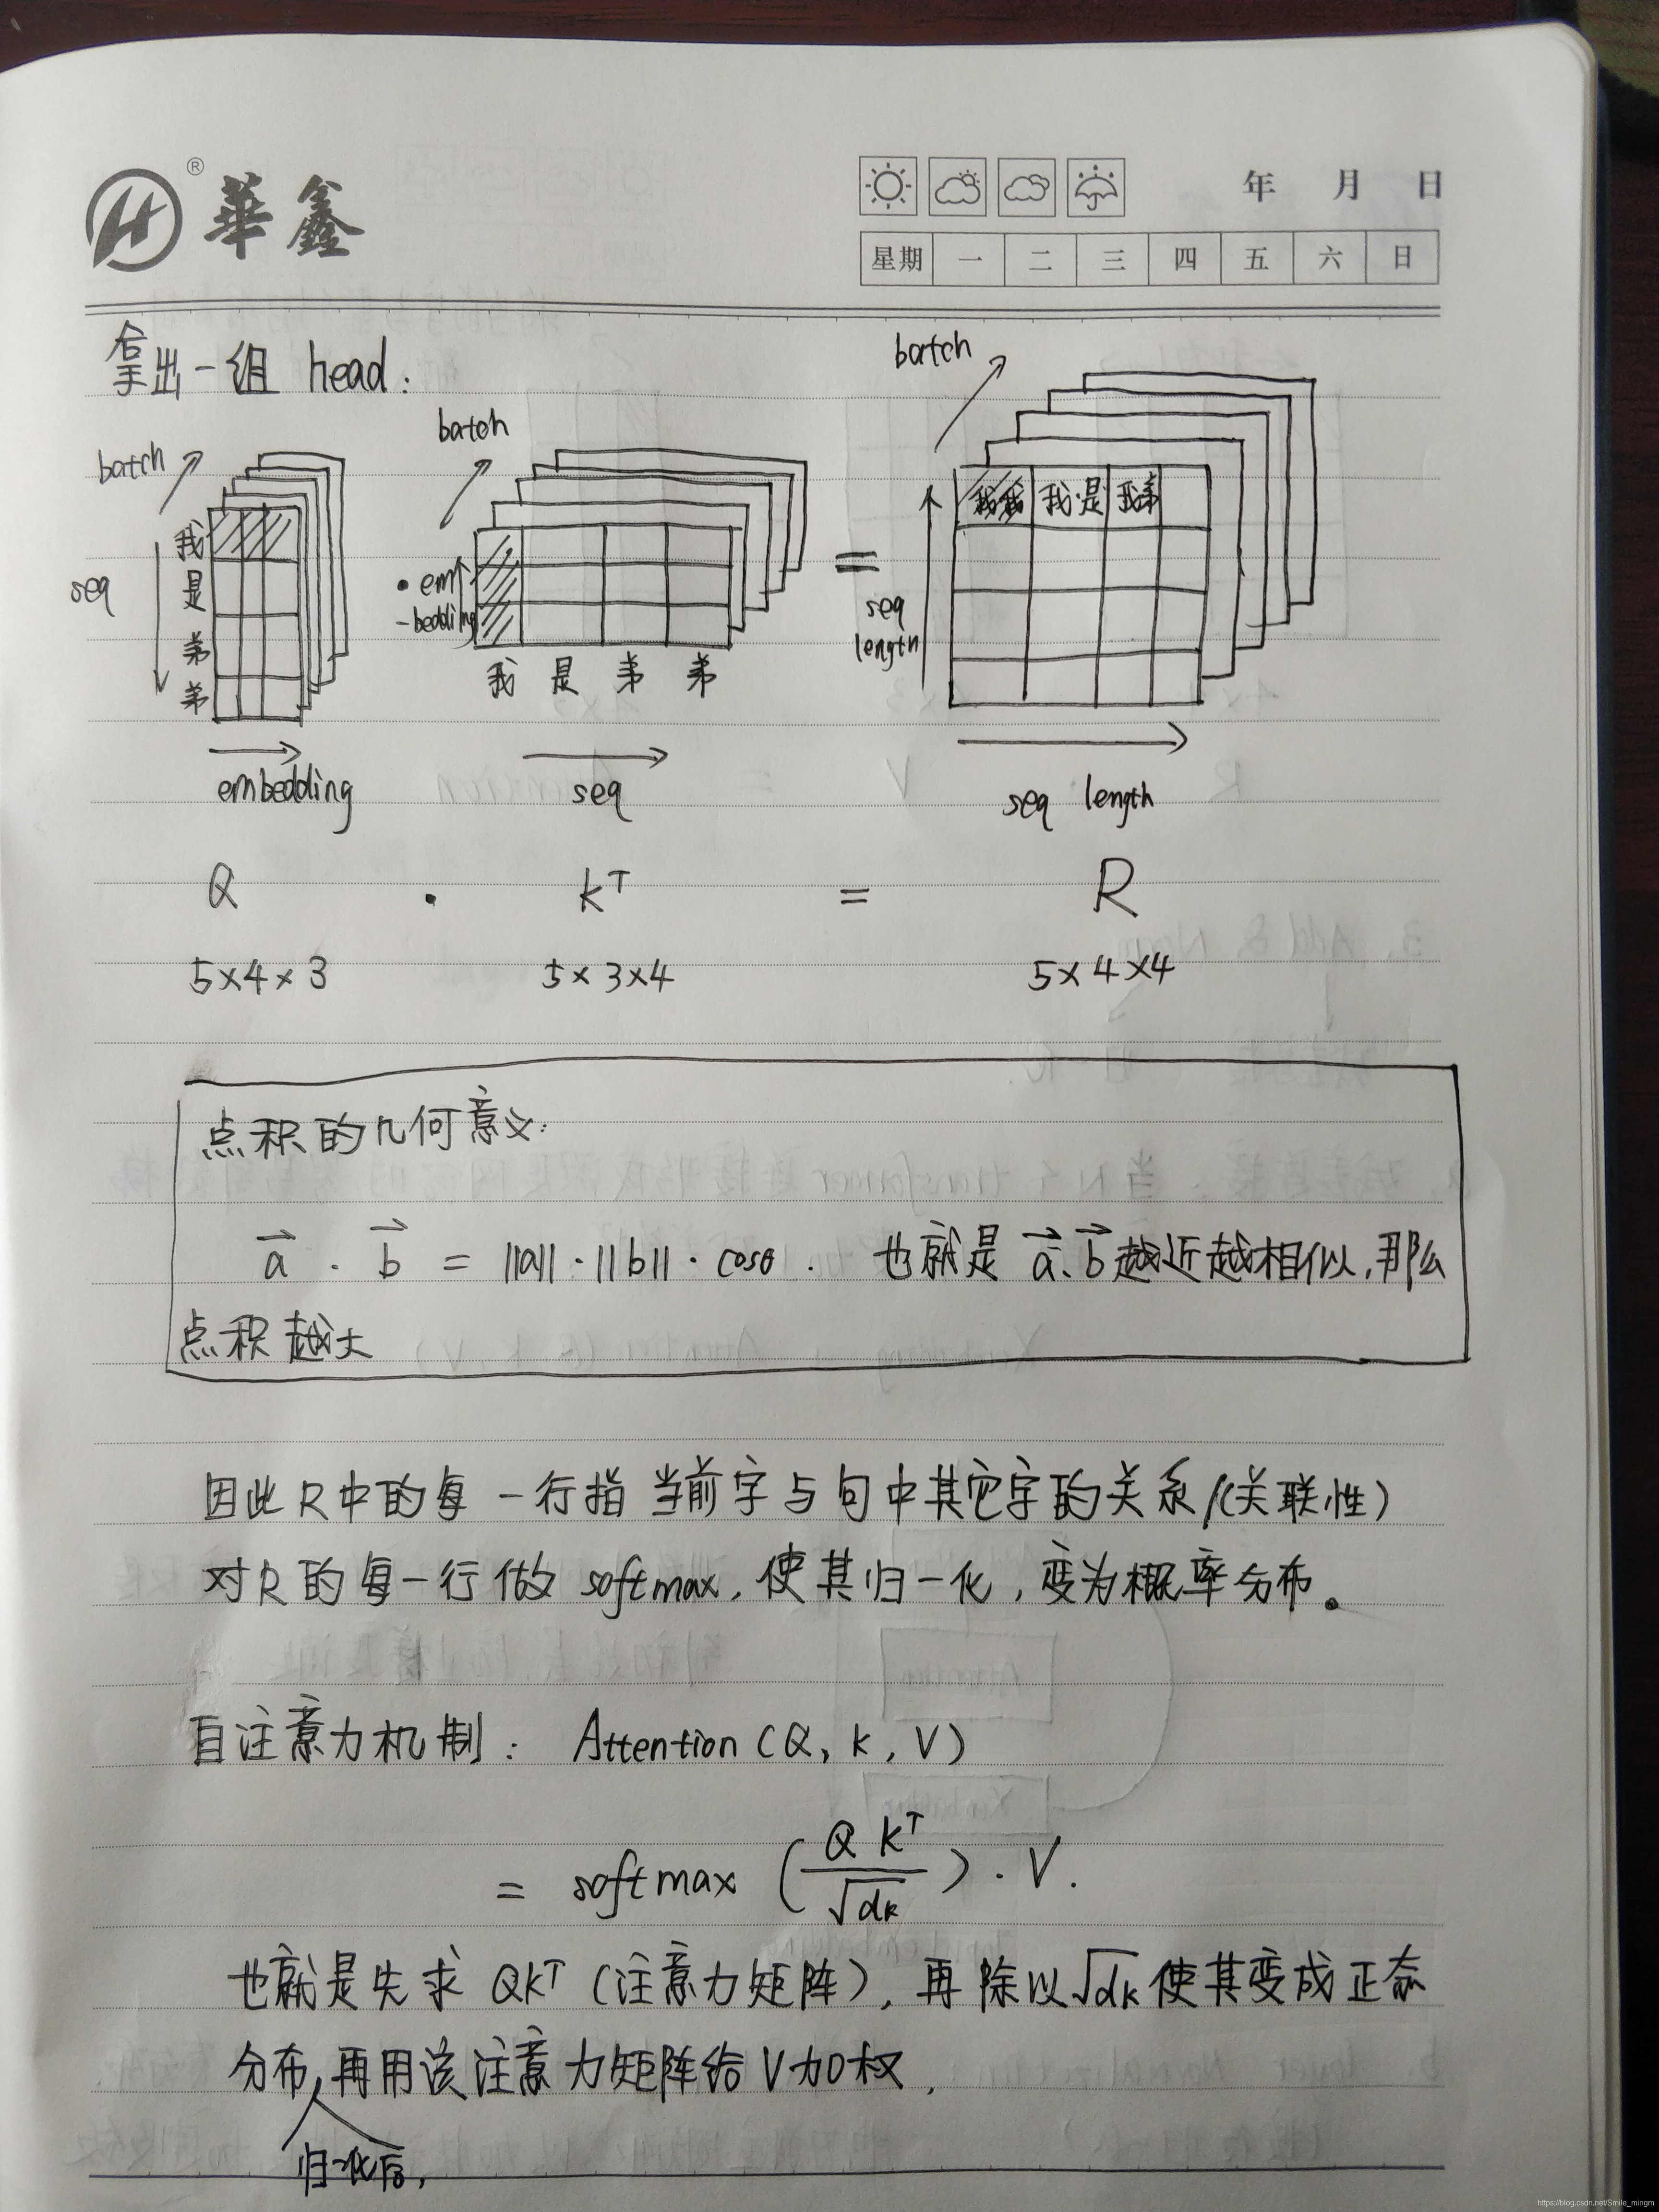 ® 華鑫
年 月 日
星期 一 二 三 四 五 六 日
拿出一组 head:
batch
seq
我
是
弟
弟
embedding
batch
• em
-bedding
我 是 弟 弟
seq
=
batch
我我 我·是 我弟
seq
length
seq length
Q · KT = R
5×4×3 5×3×4 5×4×4
点积的几何意义:
a · b = ||a||·||b||·cosθ. 也就是 a、b越近越相似,那么
点积越大
因此R中的每一行指当前字与句中其它字的关系/(关联性)
对R的每一行做 softmax,使其归一化,变为概率分布。
自注意力机制: Attention (Q, K, V)
= softmax (QKT/√dk)·V.
也就是先求 QKT (注意力矩阵),再除以√dk使其变成正态
分布,再用该注意力矩阵给V加权,
归一化后,
https://blog.csdn.net/Smile_mingm